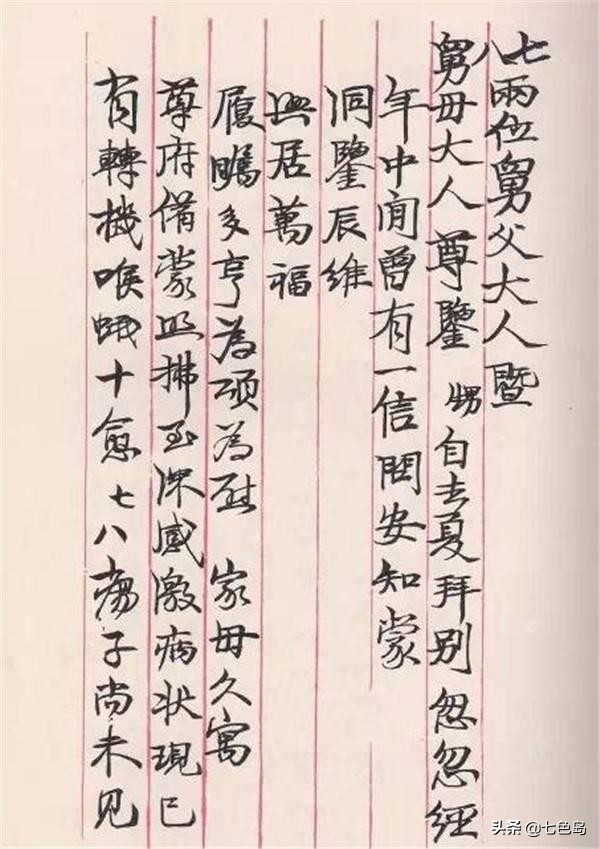 七八兩位舅父大人暨
舅母大人尊鑒 甥自去夏拜別忽忽經
年中間曾有一信問安知蒙
洞鑒辰維
興居萬福
履矚多亨為頌為慰 家母久寓
尊府備蒙照拂至深感激病狀現已
有轉機喉蛾十愈七八瘍子尚未见
头条 @七色岛